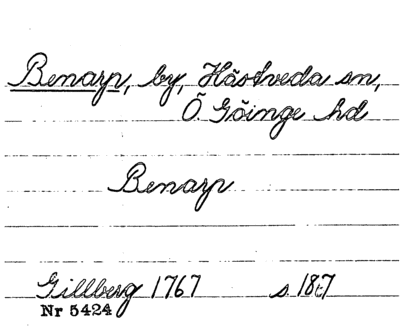 Benarp, by, Hästveda sn,
Ö. Göinge hd
Benarp
Gillberg 1767 s. 187
Nr 5424